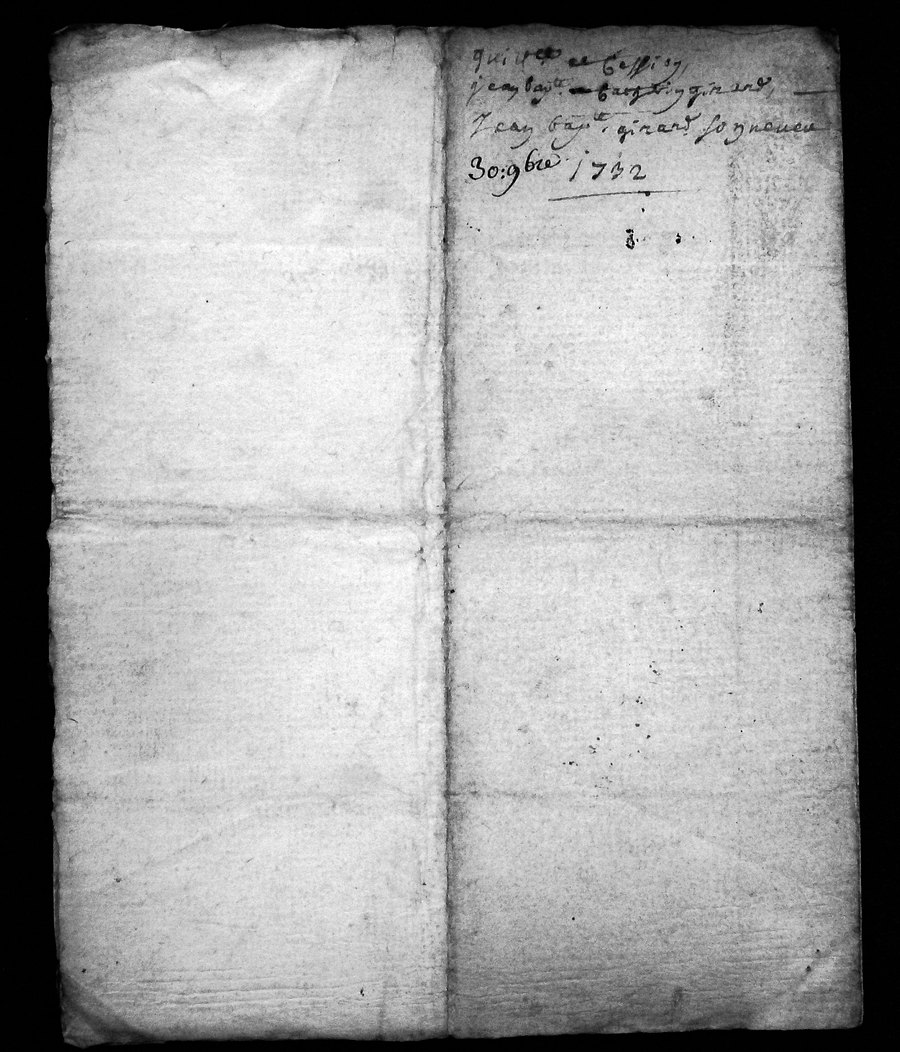 quitce et Cession
jean bapt. girard,
Jean bapte. girard son neveu
30: 9bre 1732